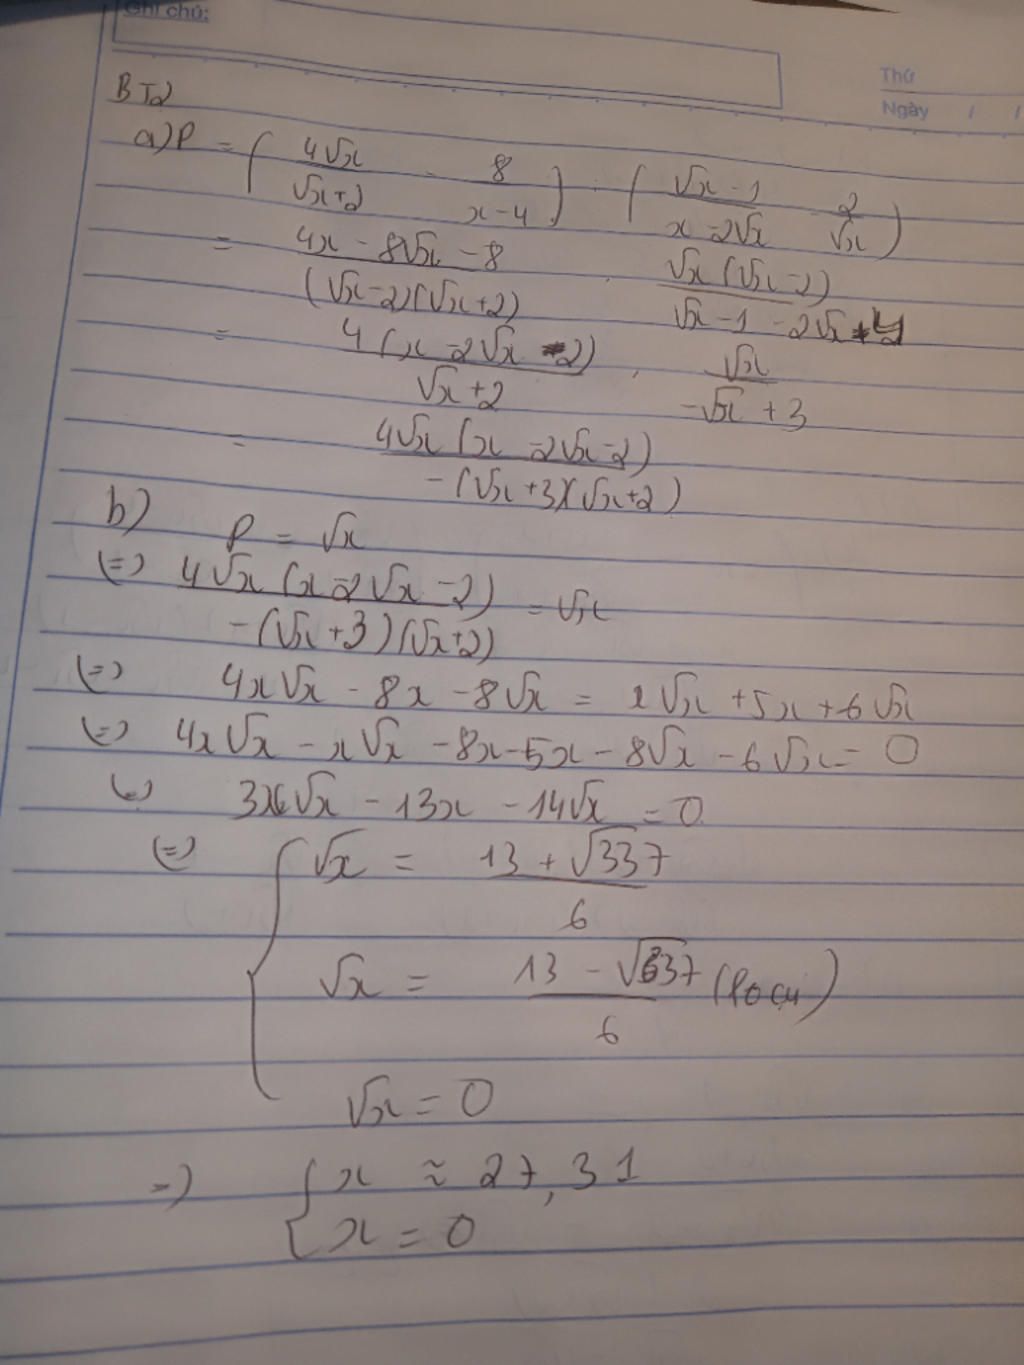 Ghi chú:
Thứ
Ngày / /
BT2
a) P = ( 4√x / (√x+2) - 8 / (x-4) ) : ( (√x-1) / (x-2√x) - 2 / √x )
= (4x - 8√x - 8) / ((√x-2)(√x+2)) . √x(√x-2) / (√x-1-2√x+4)
= 4(x-2√x-2) / (√x+2) . √x / (-√x+3)
= 4√x(x-2√x-2) / (-(√x+3)(√x+2))
b) P = √x
(=) 4√x(x-2√x-2) / (-(√x+3)(√x+2)) = √x
(=) 4x√x - 8x - 8√x = x√x + 5x + 6√x
(=) 4x√x - x√x - 8x - 5x - 8√x - 6√x = 0
(=) 3x√x - 13x - 14√x = 0
(=) { √x = (13 + √337) / 6
√x = (13 - √337) / 6 (loại)
√x = 0
=) { x ≈ 27,31
x = 0